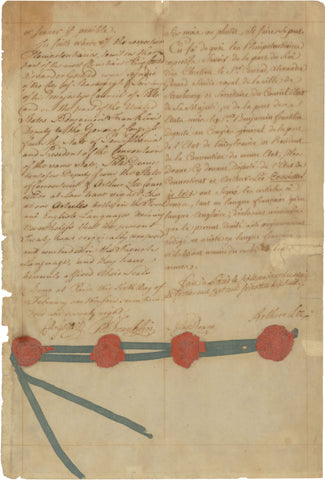 or sooner if possible.
In faith whereof the respective
Plenipotentiaries, to wit on the part
of the most Christian King Conrad
Alexander Gerard royal
of the City of Strasbourgh &
of his Majestys Council of State
and on the part of the United
States Benjamin Franklin
Deputy to the General Congress
from the State of
and President of the Convention
of the same State, Silas Deane
heretofore Deputy from the State
of Connecticut & Arthur Lee
at Law have signed the
above Articles both in the French
and English Languages declaring
Nevertheless that the present
Treaty was originally composed
and concluded in the French
Language, and they have
hereunto affixed their Seals
Done at Paris, this sixth Day of
February, one thousand seven hundred
and seventy eight
six mois ou plutôt, si faire se peut.
En foi de quoi les Plenipotentiaires
respectifs, Savoir de la part du Roi
très Chrétien le Conrad Alexandre
Gerard, royal de la Ville de
Strasbourg et Secretaire du Conseil d'Etat
de Sa Majesté, et de la part des
Etats unis Benjamin Franklin
Deputé au Congrès général de la part
de l'Etat de et President
de la Convention du même Etat, Silas
Deane, Deputé de l'Etat de
Connecticut et Arthur Lee Conseiller
ès Loix ont signé les articles ci
dessus, tant en langue françoise qu'en
langue Angloise, déclarant néanmoins
que le présent Traité a été originairement
rédigé et arrêté en langue françoise
et ils les ont munis du cachet de leurs
armes.
Fait à Paris le sixieme
CA Gerard
B Franklin
Silas Deane
Arthur Lee